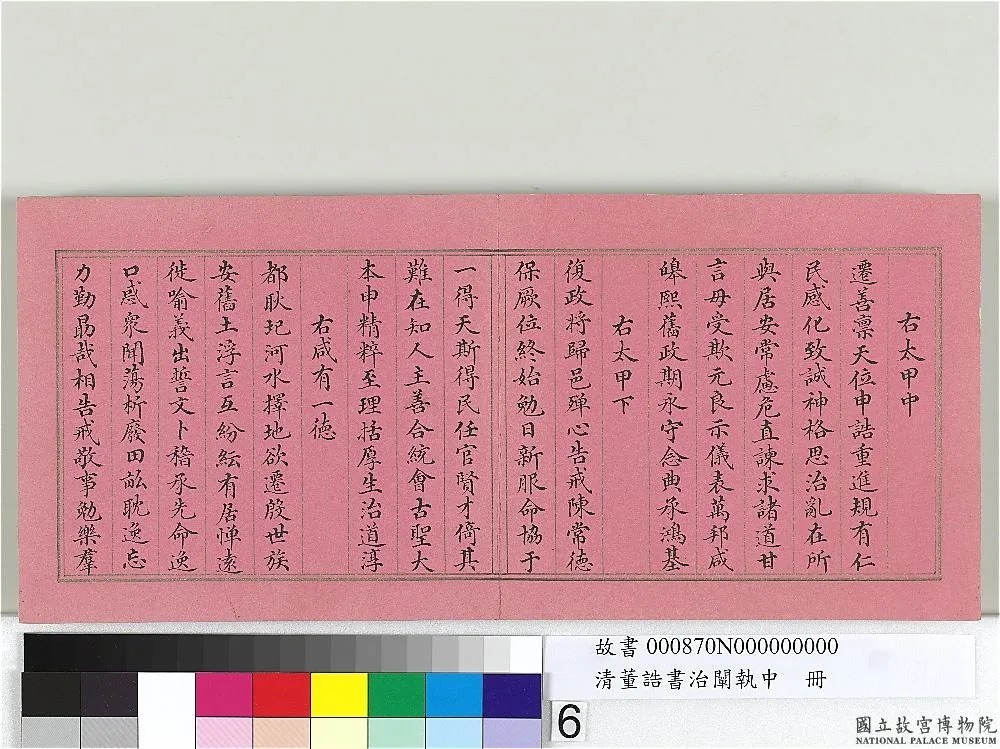 右太甲中
遷善禀天位申誥重進規有仁
民感化致誠神格思治亂在所
與居安常慮危直諫求諸道甘
言毋受欺元良示儀表萬邦咸
皡熙舊政期永守念典承鴻基
右太甲下
復政將歸邑殫心告戒陳常德
保厥位終始勉日新服命協于
一得天斯得民任官賢才倚其
難在知人主善合統會古聖大
本申精粹至理括厚生治道淳
右咸有一德
都耿圮河水擇地欲遷殷世族
安舊土浮言互紛紜有居憚遠
徙喻義出誓文卜稽承先命逸
口惑眾聞蕩析廢田畝耽逸忘
力勤勗哉相告戒敬事勉樂羣
故書 000870N000000000
清董誥書治闡執中 冊
6
國立故宮博物院
NATIONAL PALACE MUSEUM